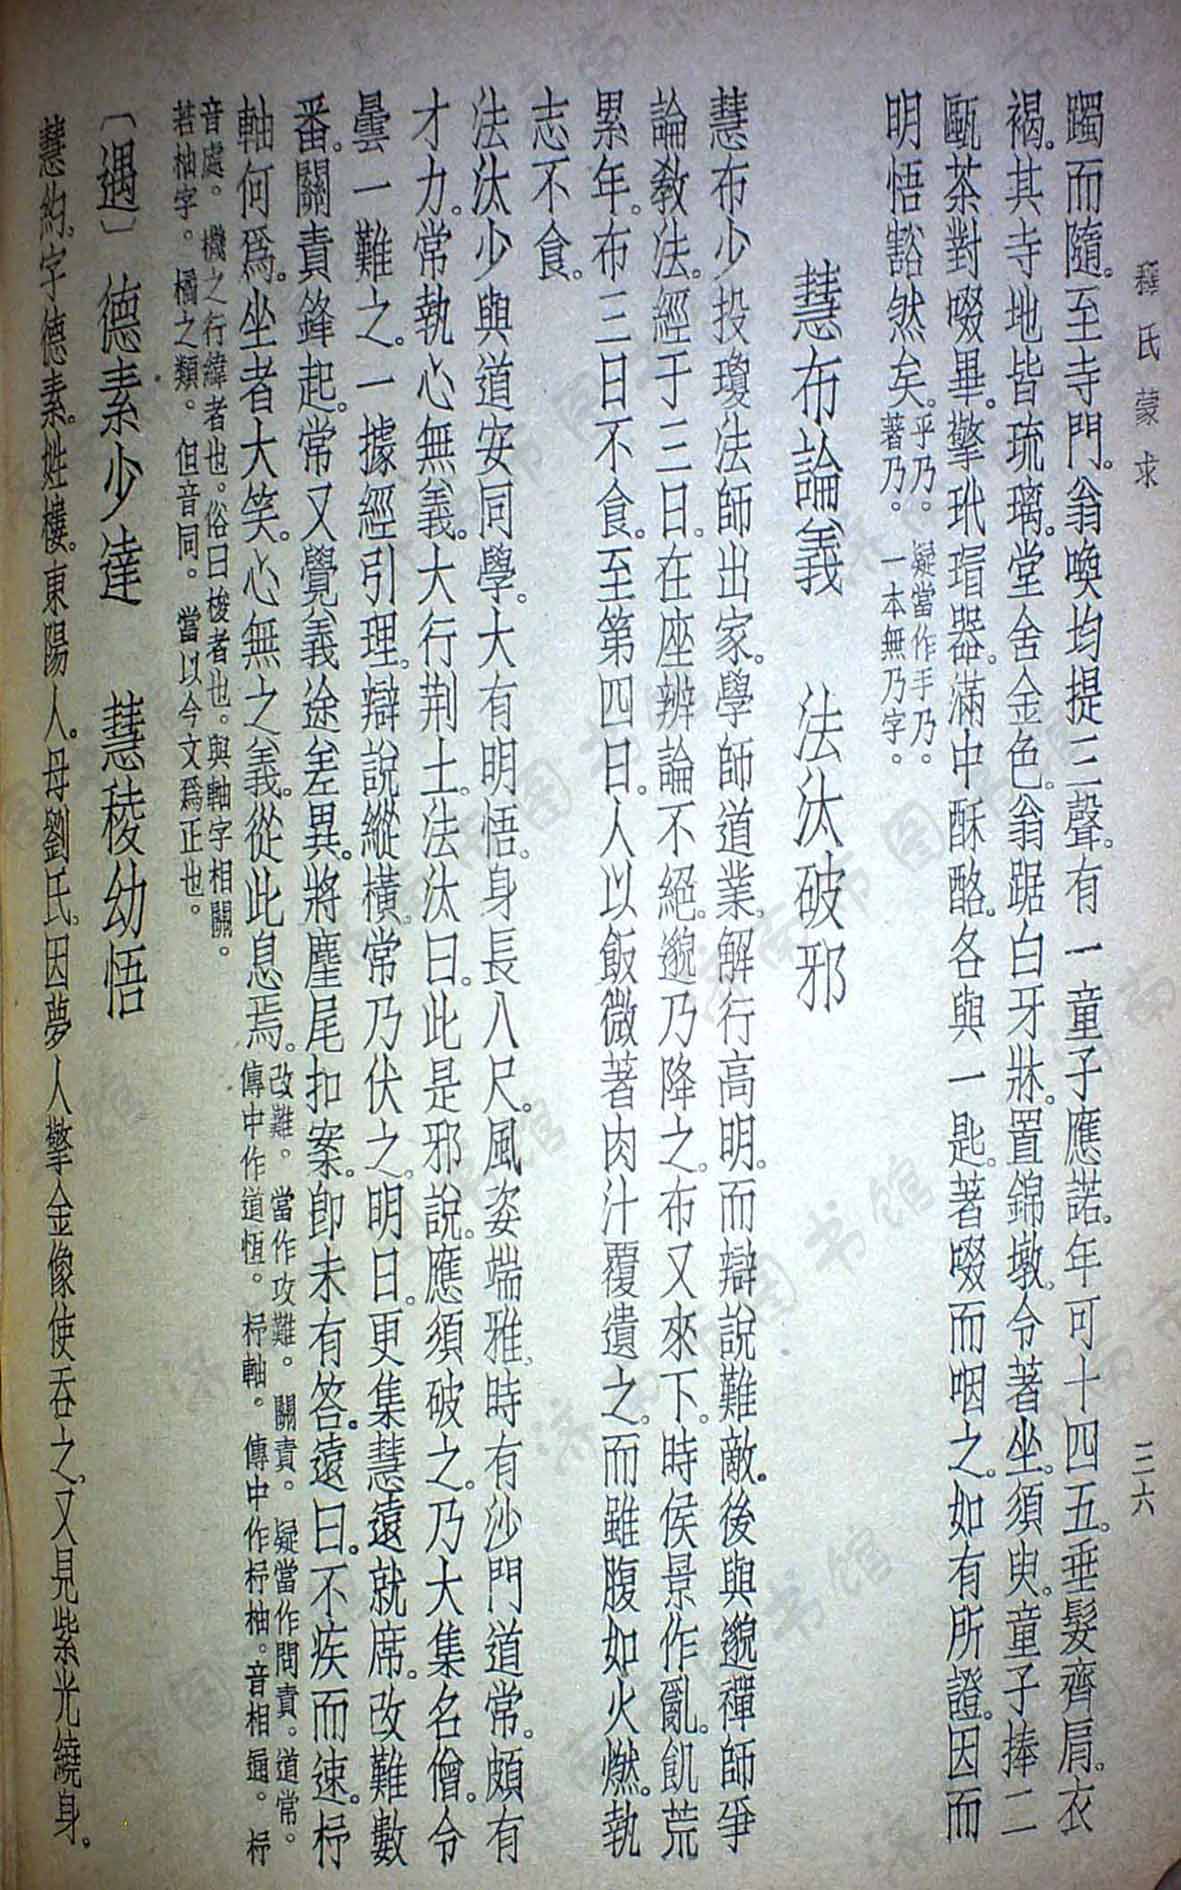 釋氏蒙求
三六
躅而隨。至寺門。翁喚均提三聲。有一童子應諾。年可十四五。垂髮齊肩。衣
褐。其寺地皆琉璃。堂舍金色。翁踞白牙牀。置錦墩。令著坐。須臾。童子捧二
甌茶對啜畢。擎玳瑁器。滿中酥酪。各與一匙。著啜而咽之。如有所證。因而
明悟豁然矣。
乎乃。疑當作手乃。
著乃。一本無乃字。
慧布論義　法汰破邪
慧布少投瓊法師出家。學師道業。解行高明。而辯說難敵。後與邈禪師爭
論教法。經于三日。在座辨論不絕。邈乃降之。布又來下。時侯景作亂。飢荒
累年。布三日不食。至第四日。人以飯微著肉汁覆遺之。而雖腹如火燃。執
志不食。
法汰少與道安同學。大有明悟。身長八尺。風姿端雅。時有沙門道常。頗有
才力。常執心無義。大行荆土。法汰曰。此是邪說。應須破之。乃大集名僧。令
曇一難之。一據經引理。辯說縱橫。常乃伏之。明日。更集慧遠就席。改難數
番。關責鋒起。常又覺義途差異。將麈尾扣案。卽未有答。遠曰。不疾而速。杼
軸何爲。坐者大笑。心無之義。從此息焉。
改難。當作攻難。關責。疑當作問責。道常。
傳中作道恆。杼軸。傳中作杼柚。音相通。杼
音處。機之行緯者也。俗曰梭者也。與軸字相關。
若柚字。橘之類。但音同。當以今文爲正也。
〔遇〕德素少達　慧稜幼悟
慧約。字德素。姓樓。東陽人。母劉氏。因夢人擎金像使吞之。又見紫光繞身。